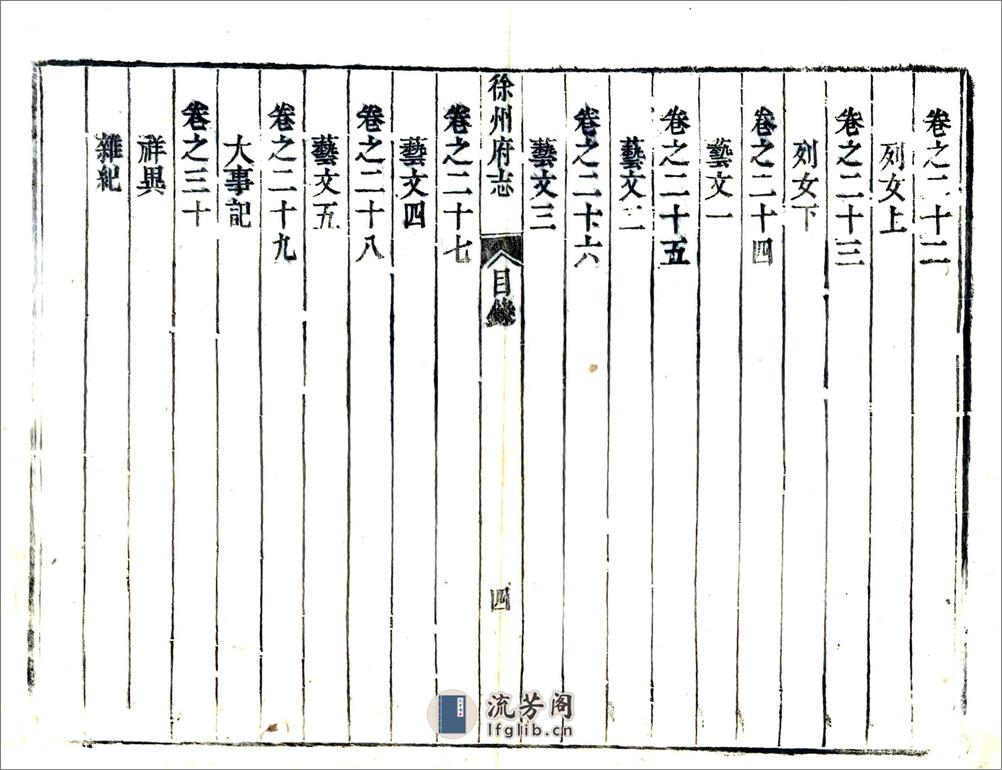 卷之二十二
列女上
卷之二十三
列女下
卷之二十四
藝文一
卷之二十五
藝文二
卷之二十六
藝文三
徐州府志
目錄
四
卷之二十七
藝文四
卷之二十八
藝文五
卷之二十九
大事記
卷之三十
祥異
雜紀
流芳阁
lfglib.cn